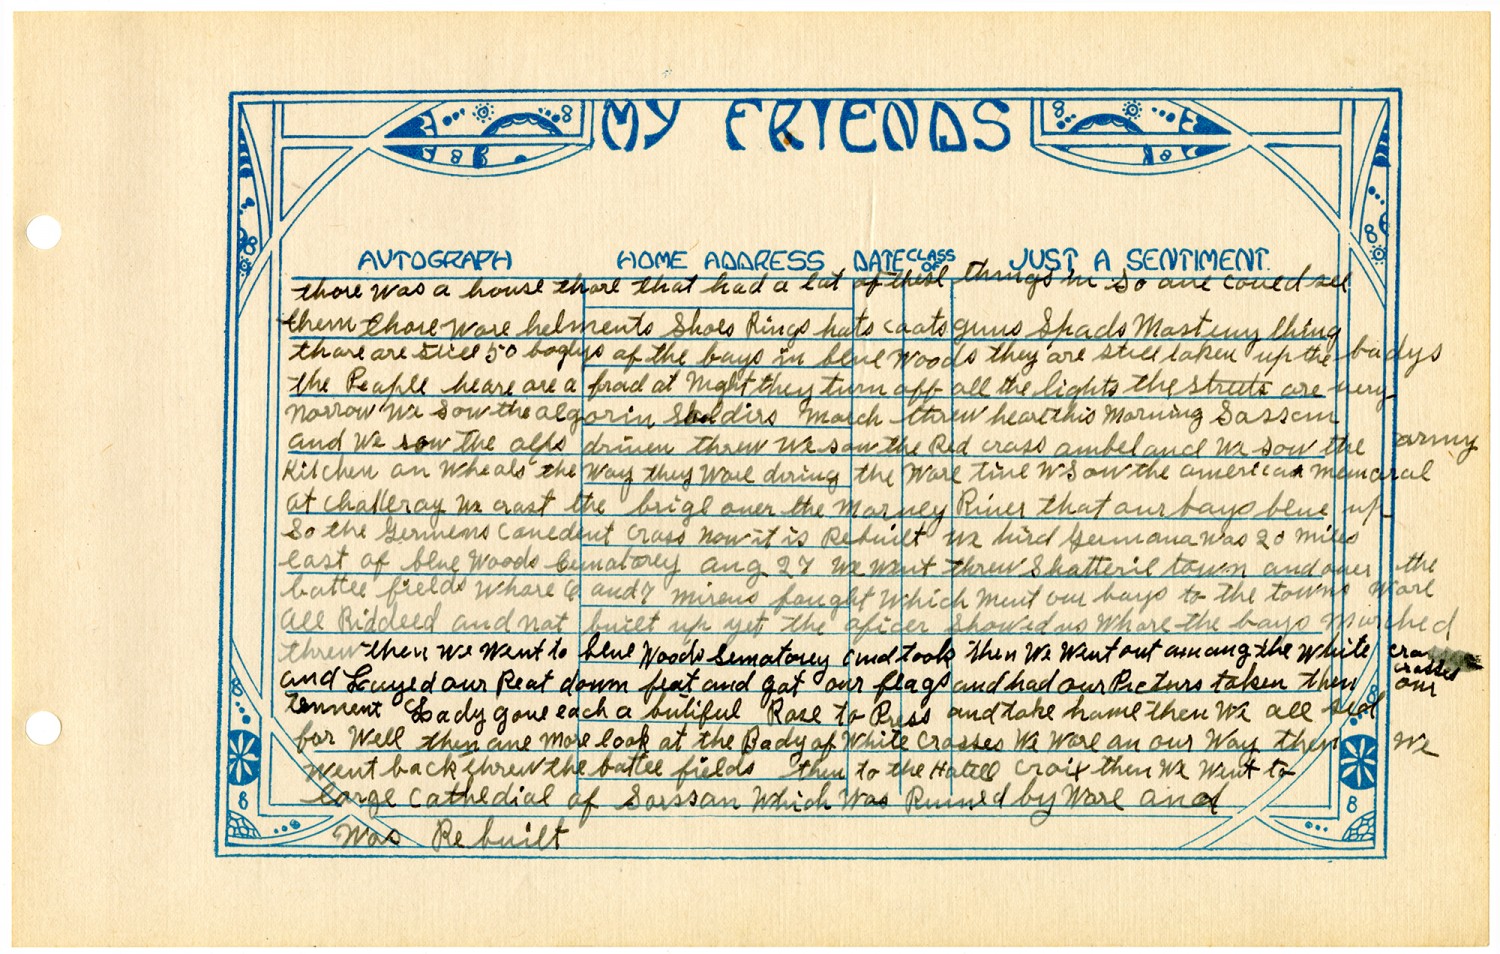 MY FRIENDS
AUTOGRAPH HOME ADDRESS DATE CLASS OF JUST A SENTIMENT
thore was a house thare that had a lat of thesl things in So one coued see
them thore wore helments Shoes Rings hats coats guns Spads Mosteny thing
thare are stiee 50 bodys of the bays in blue Woods they are stiee taken up the badys
the Peaple heare are a fraid at Night they turn off all the lights the streets are very
norrow We Sow the algorin Soldirs March threw hearthis Morning Sasson
and We sow the alps driven threw We saw the Red crass ambeland We Sow the army
Kitchen on Wheals the Way they Ware during the Ware time W Sow the american Memoral
at challeray We crast the brige over the Marney River that our bays blue up
So the Germens Canedent Crass now it is Rebuilt We hird Germana Was 20 miles
east of blue Woods Cematorey aug 27 We Went threw Shatteril town and over the
battle fields Whare 6 and 7 mirens fought Which Ment our bays to the towns Wore
all Riddeed and not built up yet the oficer Showed us Whare the bays Marched
threw then We Went to blue Woods Sematorey and took then We Went out amang the White crasses
and Layed our Reat down feat and got our flags and had our Picturs taken then our
Tennent Lady gave each a butiful Rose to Press and take home then We all sed
far Well then ane More look at the Bady of White Crosses We Ware an our Way then We
Went back threw the battle fields then to the Hatell Croix then We Went to
large Cathedial of Sorssan Which Was Ruined by Ware and
Was Re built